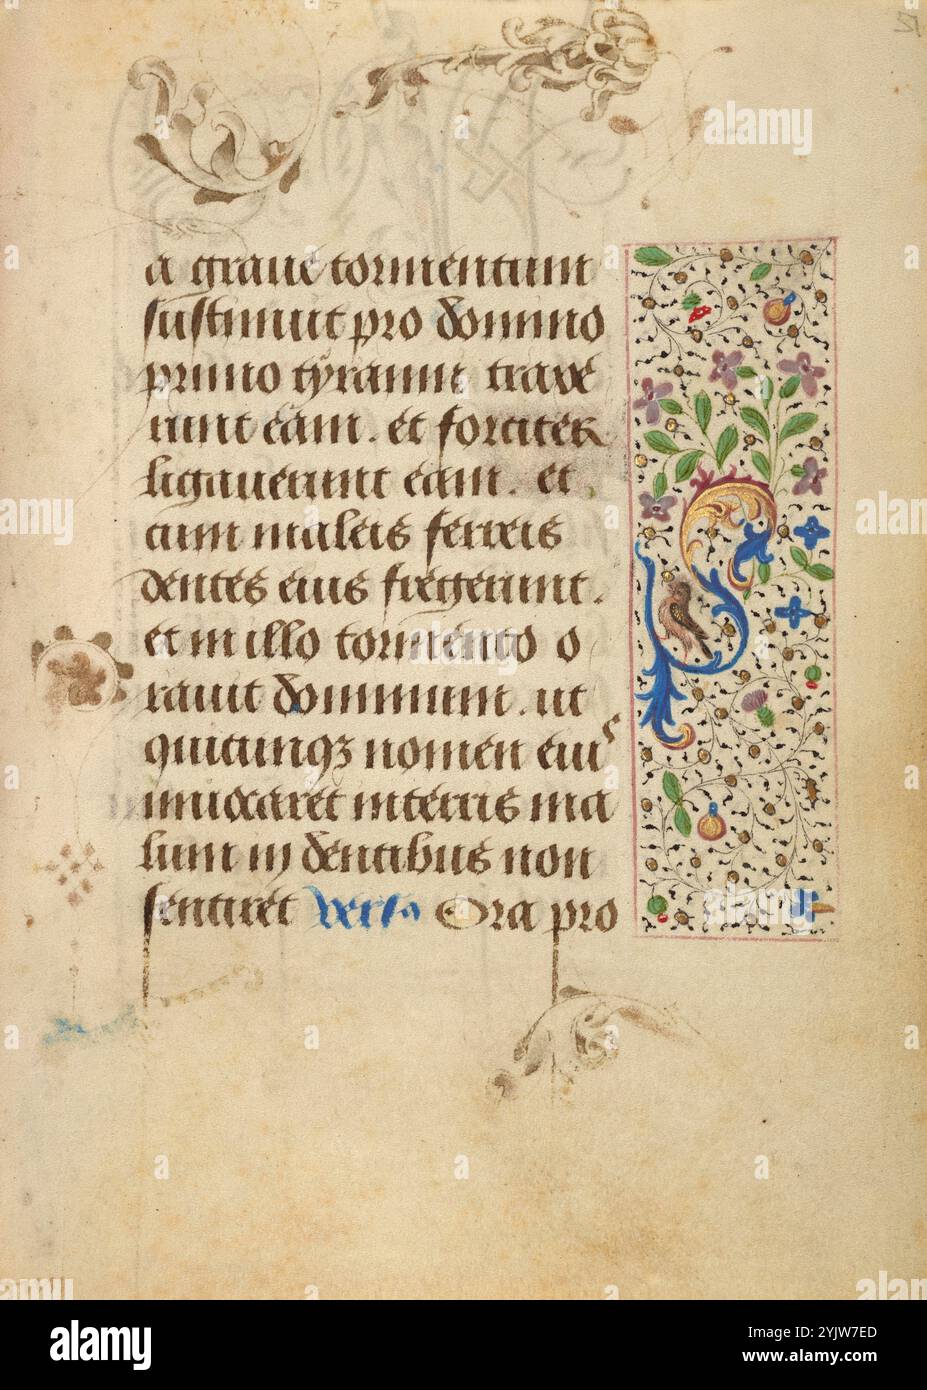 a graue tormentum
sustinuit pro domino
primo tyranni traxe
runt eam. et forciter
ligauerunt eam. et
cum maleis ferreis
dentes eius fregerunt.
et in illo tormento o
rauit dominum. ut
quicunqꝫ nomen eius
inuocaret in terris ma
lum in dentibus non
sentiret versꝰ Ora pro
alamy
Image ID: 2YJW7ED
www.alamy.com